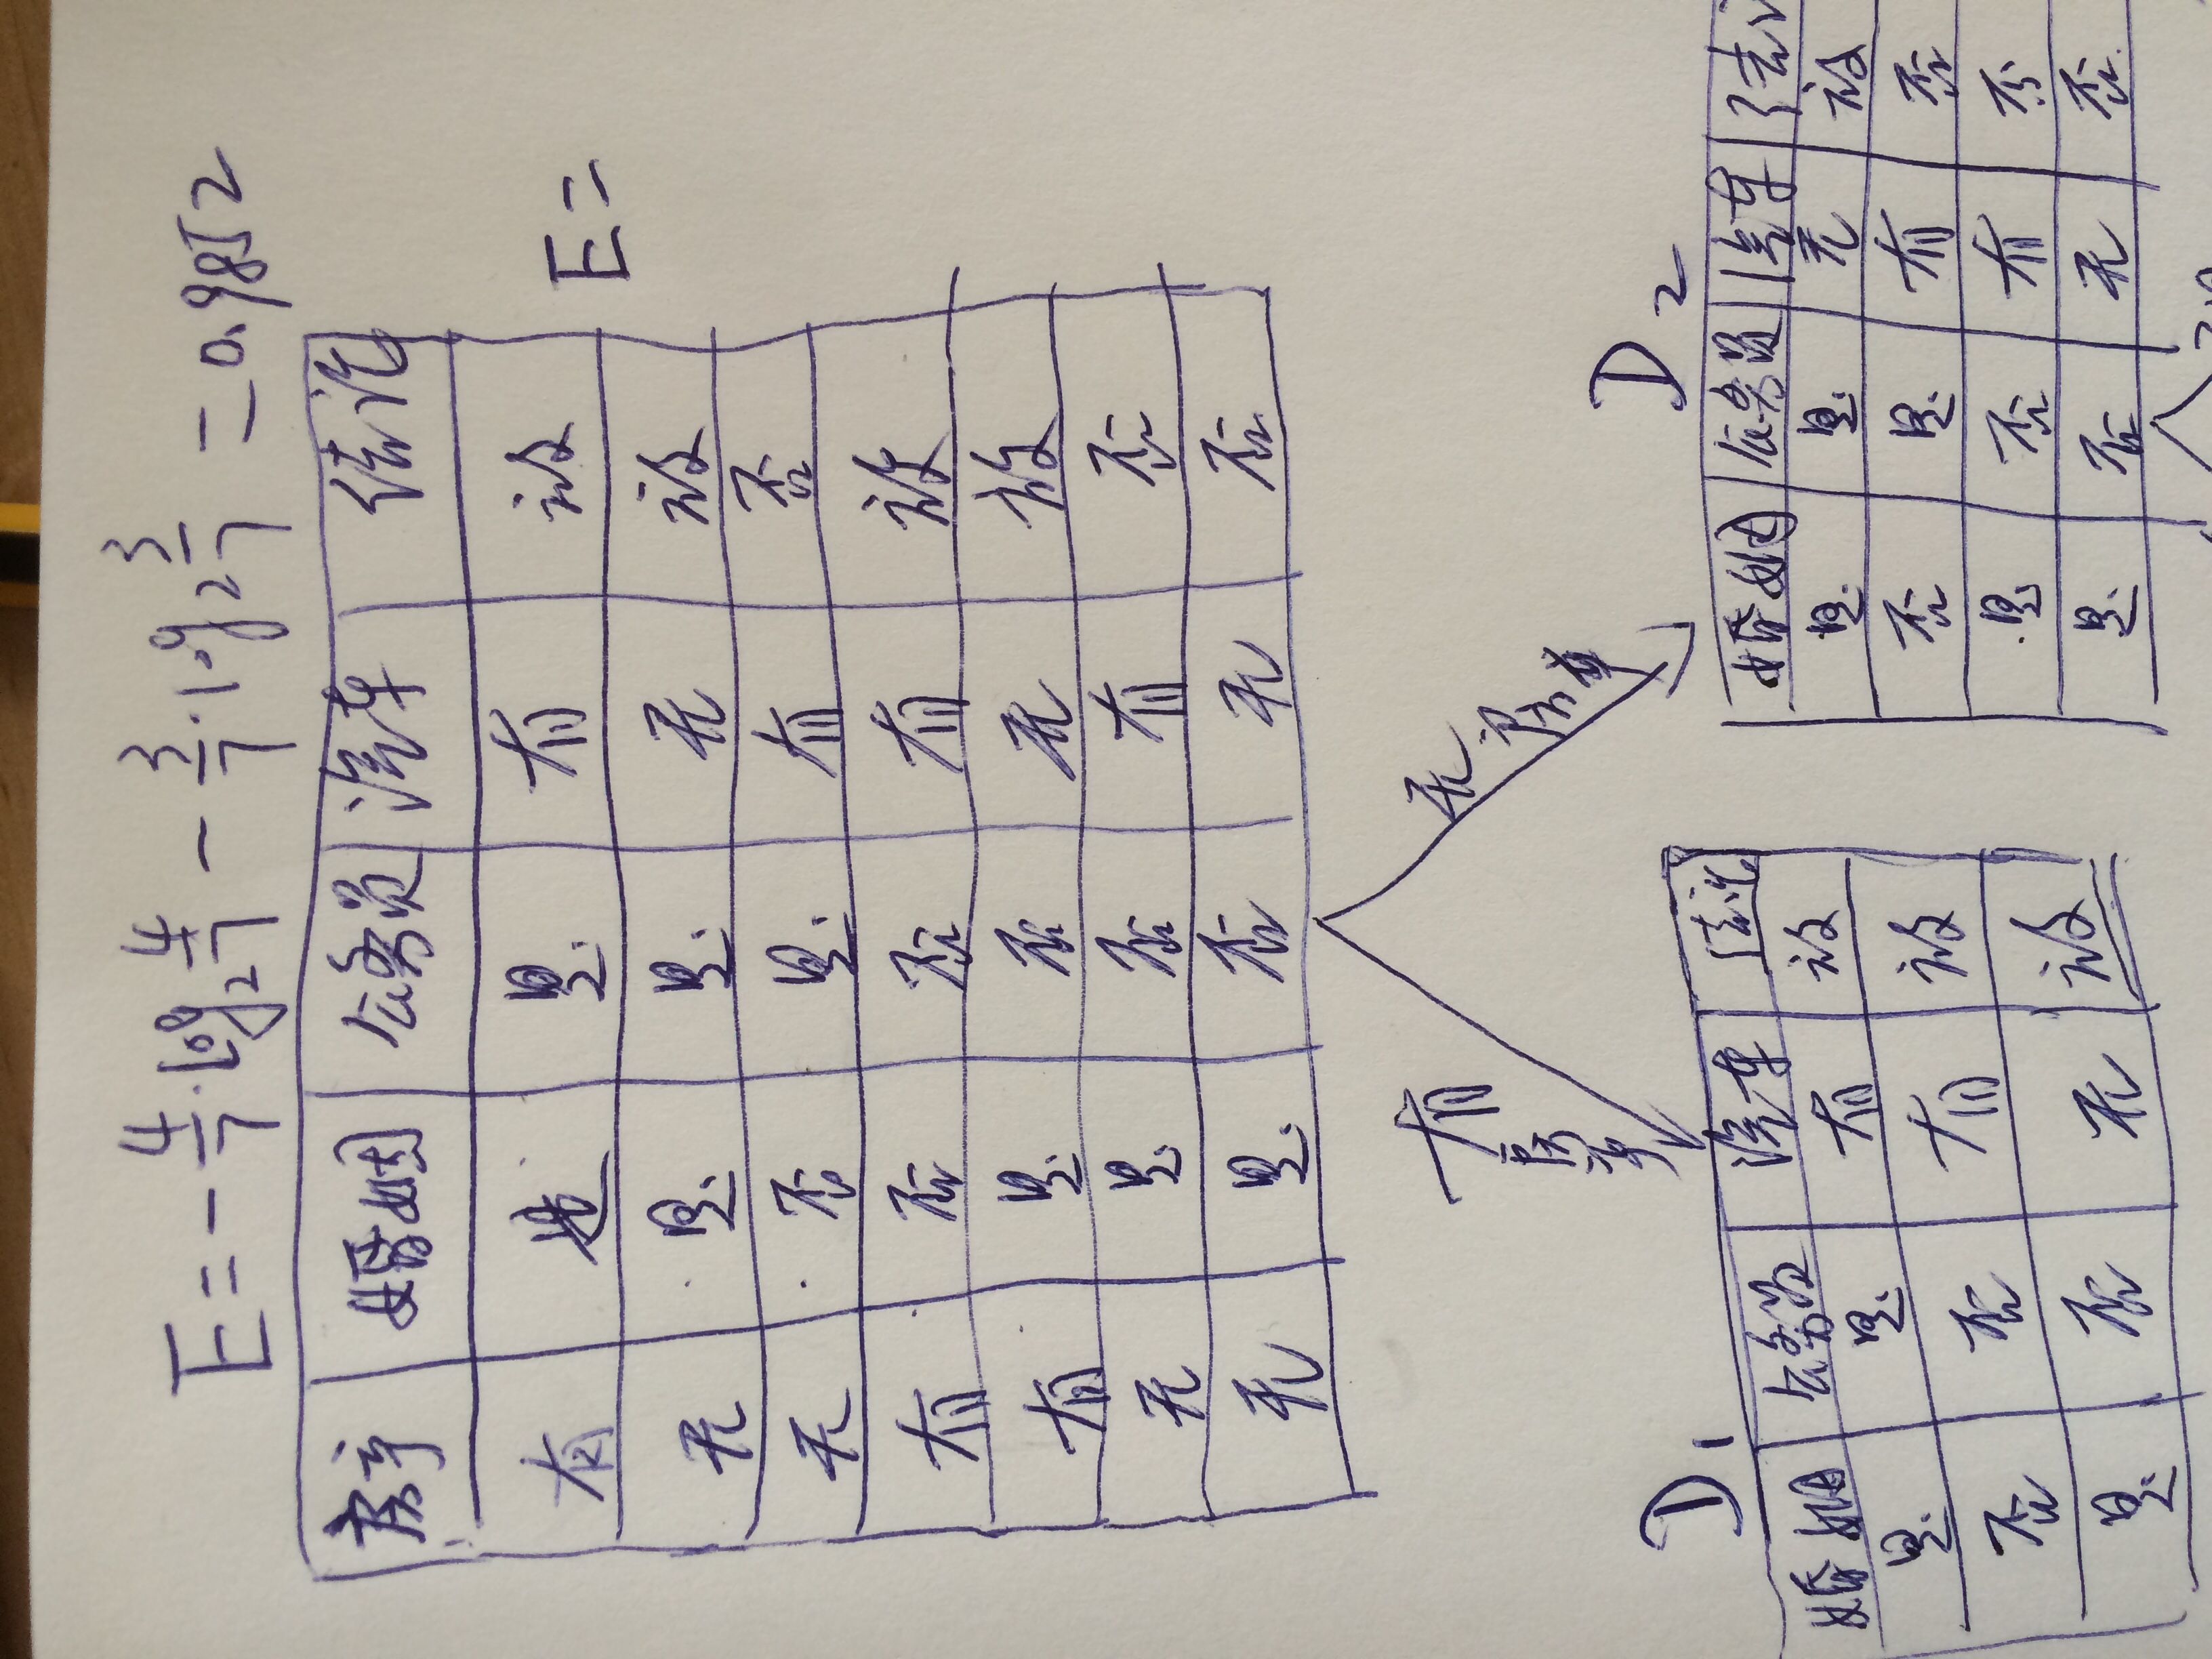 E=-4/7·log₂4/7-3/7·log₂3/7=0.9852
房产 婚姻 公务员 汽车 结论
有 是 是 有 放
E=
无 是 是 无 放
无 否 是 有 否
有 否 否 有 放
有 是 否 无 放
无 是 否 有 否
无 是 否 无 否
有房产
无房产
D₁
婚姻 公务员 汽车 结论
是 是 有 放
否 否 有 放
是 否 无 放
D₂
婚姻 公务员 汽车 结
是 是 无 放
否 是 有 否
是 否 有 否
是 否 无 否